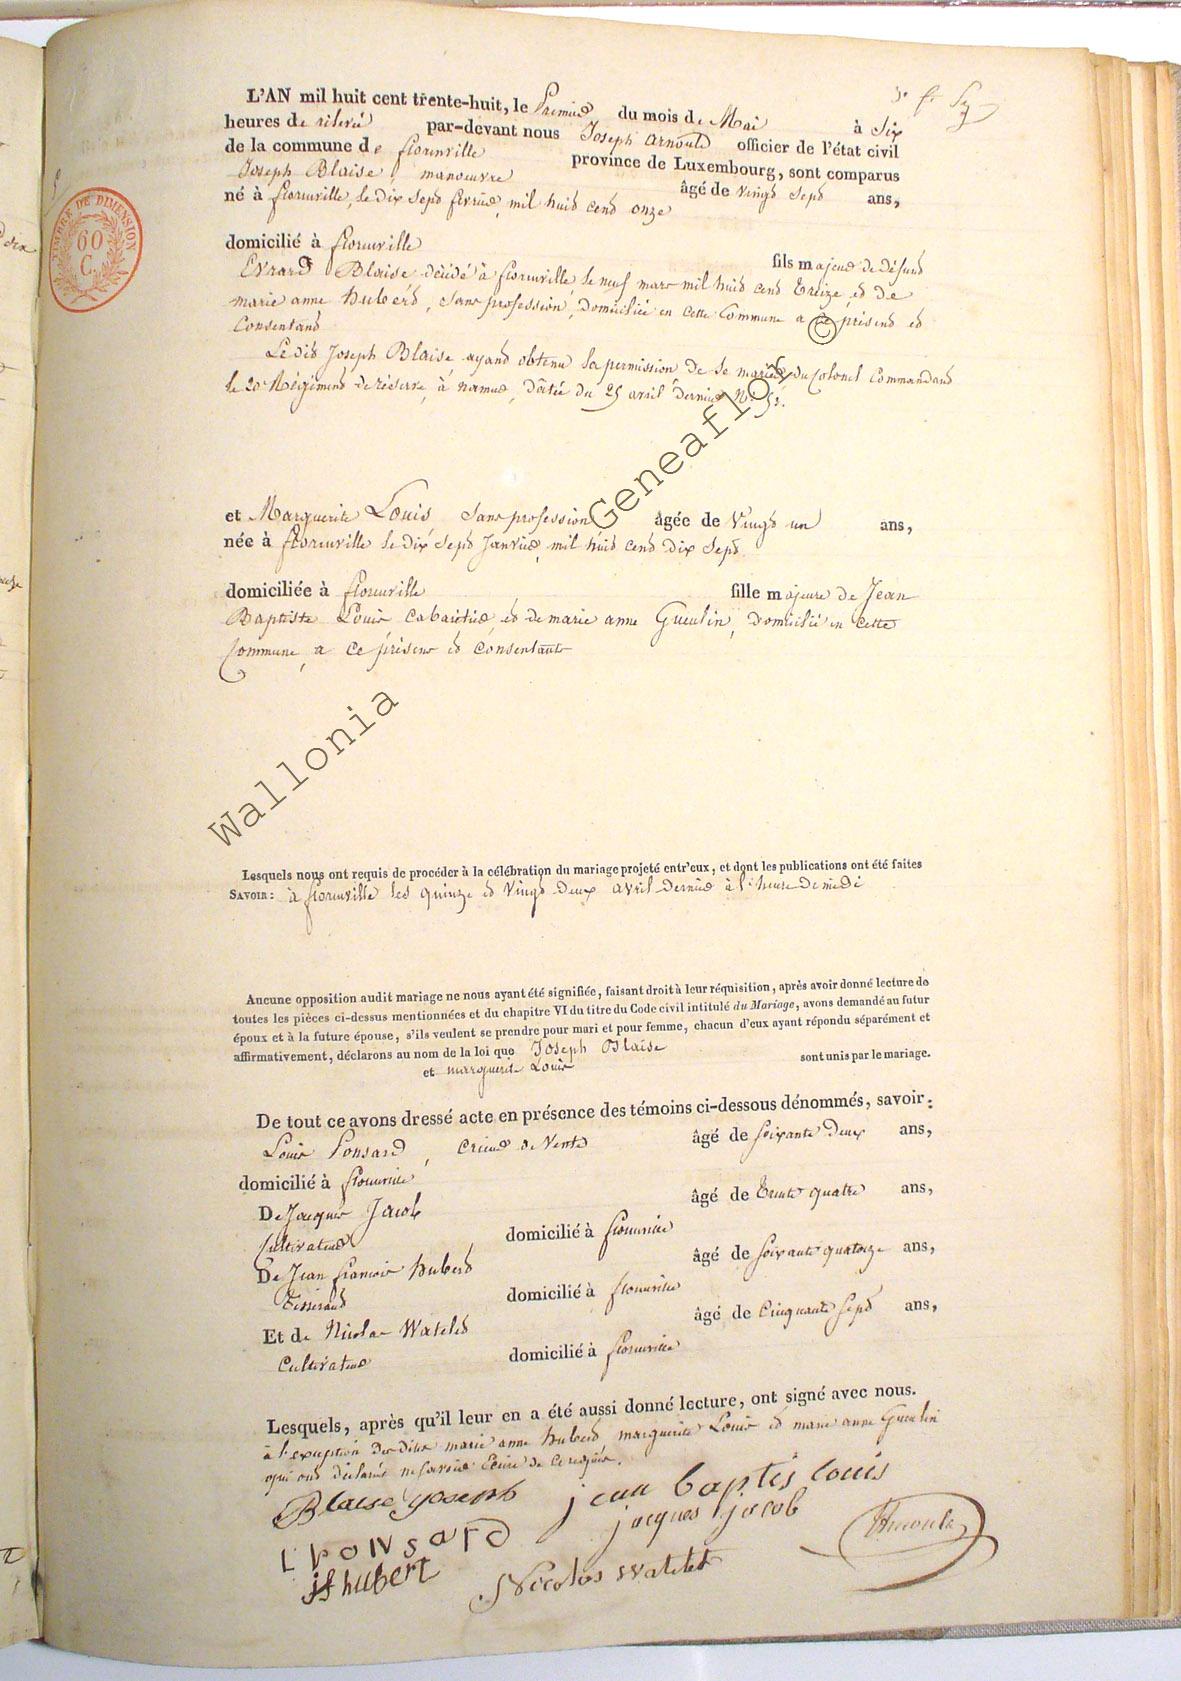 L'AN mil huit cent trente-huit, le Premier du mois de Mai à Six
heures de relevé par-devant nous Joseph Arnould officier de l'état civil
de la commune de florenville province de Luxembourg, sont comparus
Joseph Blaise manoeuvre âgé de vingt sept ans,
né à florenville, le dix sept fevrier, mil huit cent onze
TIMBRE DE DIMENSION
60
C.
domicilié à florenville fils majeur de défunt
Evrard Blaise décédé à florenville le neuf mars mil huit cent treize et de
marie anne hubert, sans profession, domiciliée en cette Commune a ce présent et
Consentant
Le dit Joseph Blaise, ayant obtenu la permission de se marier du Colonel Commandant
le 20e Régiment de réserve, à namur, datée du 25 avril dernier
et Marguerite Louis, sans profession âgée de vingt un ans,
née à florenville le dix sept Janvier, mil huit cent dix sept
domiciliée à florenville fille majeure de Jean
Baptiste Louis cabaretier, et de marie anne Gueulin, domicilié en cette
Commune, a ce présens et consentants
© Geneaflor
Wallonia
Lesquels nous ont requis de procéder à la célébration du mariage projeté entr'eux, et dont les publications ont été faites
SAVOIR: à florenville les quinze et vingt deux avril dernier à l'heure de midi
Aucune opposition audit mariage ne nous ayant été signifiée, faisant droit à leur réquisition, après avoir donné lecture de
toutes les pièces ci-dessus mentionnées et du chapitre VI du titre du Code civil intitulé du Mariage, avons demandé au futur
époux et à la future épouse, s'ils veulent se prendre pour mari et pour femme, chacun d'eux ayant répondu séparément et
affirmativement, déclarons au nom de la loi que Joseph Blaise
et marguerite Louis sont unis par le mariage.
De tout ce avons dressé acte en présence des témoins ci-dessous dénommés, savoir:
Louis Ponsard, crieur de vente âgé de soixante deux ans,
domicilié à florenville
De Jacques Jacob âgé de trente quatre ans,
Cultivateur domicilié à florenville
De Jean françois hubert âgé de soixante quatorze ans,
tisserand domicilié à florenville
Et de Nicolas Watelet âgé de cinquante sept ans,
Cultivateur domicilié à florenville
Lesquels, après qu'il leur en a été aussi donné lecture, ont signé avec nous.
à l'exception des dites marie anne hubert, marguerite Louis et marie anne Gueulin
qui ont déclaré ne savoir Ecrire de ce requis.
Blaise yoseph jean baptis louis
jacques jacob
L PONSARD Arnould
jf hubert Nicolas watelet